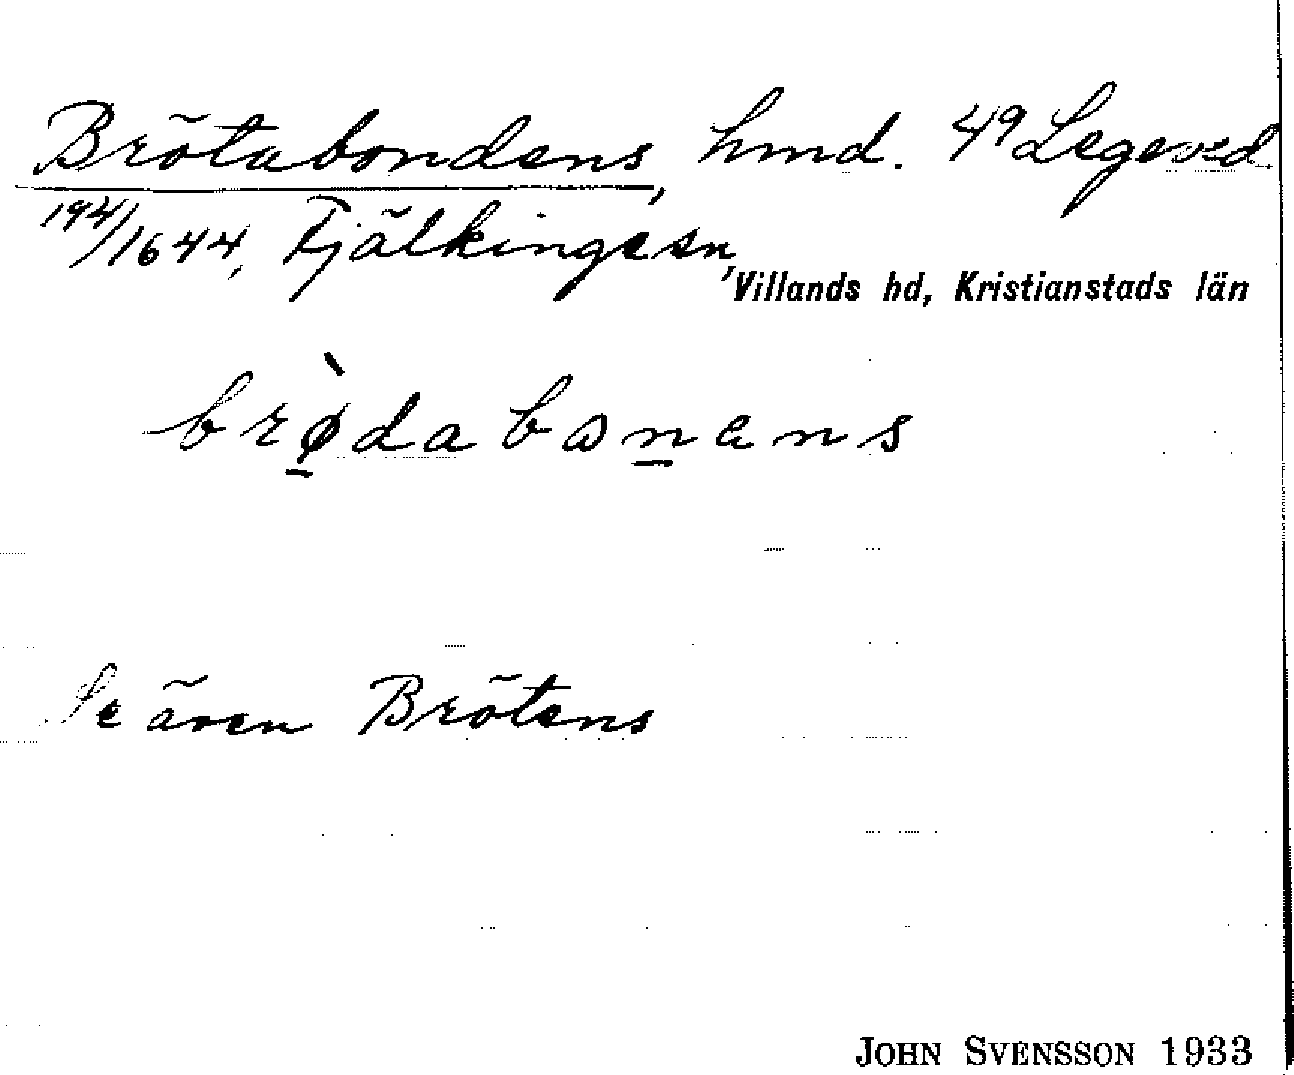 Brötabondens, hmd. 49 Legeved
194/1644, Fjälkinge sn,
Villands hd, Kristianstads län
brø̀dabɷnans
Se även Brötens
JOHN SVENSSON 1933